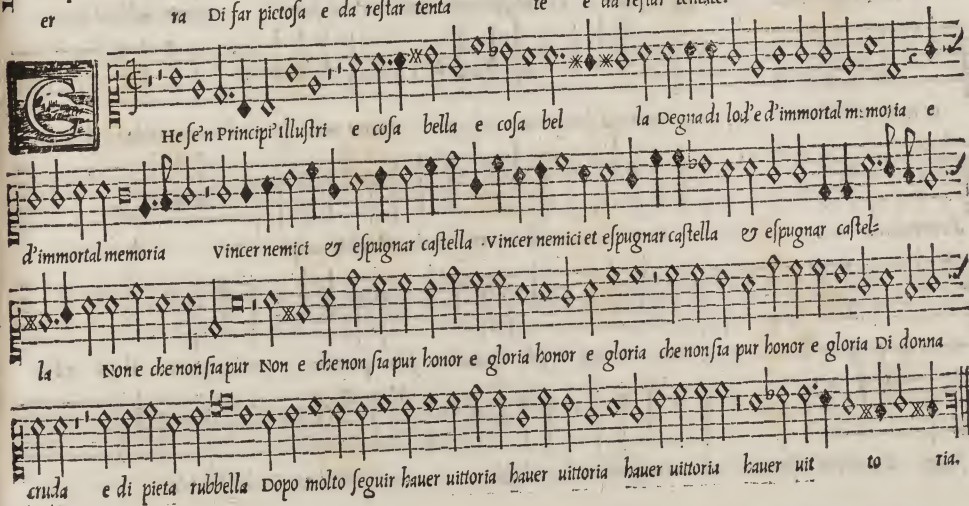 er ra Di far pietosa e da restar tenta te e da restar
C
He se'n Principi'illustri e cosa bella e cosa bel la Degna di lod'e d'immortal memoria e
d'immortal memoria Vincer nemici & espugnar castella .Vincer nemici et espugnar castella & espugnar castel=
la Non e che non sia pur Non e che non sia pur honor e gloria honor e gloria che non sia pur honor e gloria Di donna
cruda e di pieta rubbella Dopo molto seguir hauer uittoria hauer uittoria hauer uittoria hauer uit to ria.